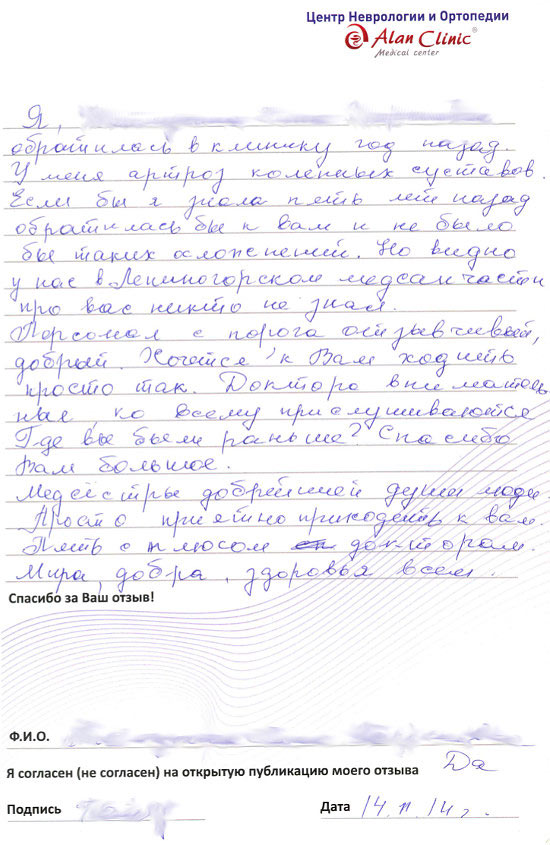 Центр Неврологии и Ортопедии
Alan Clinic®
Medical center
Я,
обратилась в клинику год назад.
У меня артроз коленных суставов.
Если бы я знала пять лет назад
обратилась бы к вам и не было
бы таких осложнений. Но видно
у нас в Лениногорском медсанчасти
про вас никто не знал.
Персонал с порога отзывчивый,
добрый. Хочется к Вам ходить
просто так. Доктора вниматель
ные, ко всему прислушиваются
Где вы были раньше? Спасибо
Вам большое.
Медсёстры добрейшей души люди.
Просто приятно приходить к вам.
Пять с плюсом докторам.
Мира, добра, здоровья всем.
Спасибо за Ваш отзыв!
Ф.И.О.
Я согласен (не согласен) на открытую публикацию моего отзыва Да
Подпись Дата 14.11.14г.